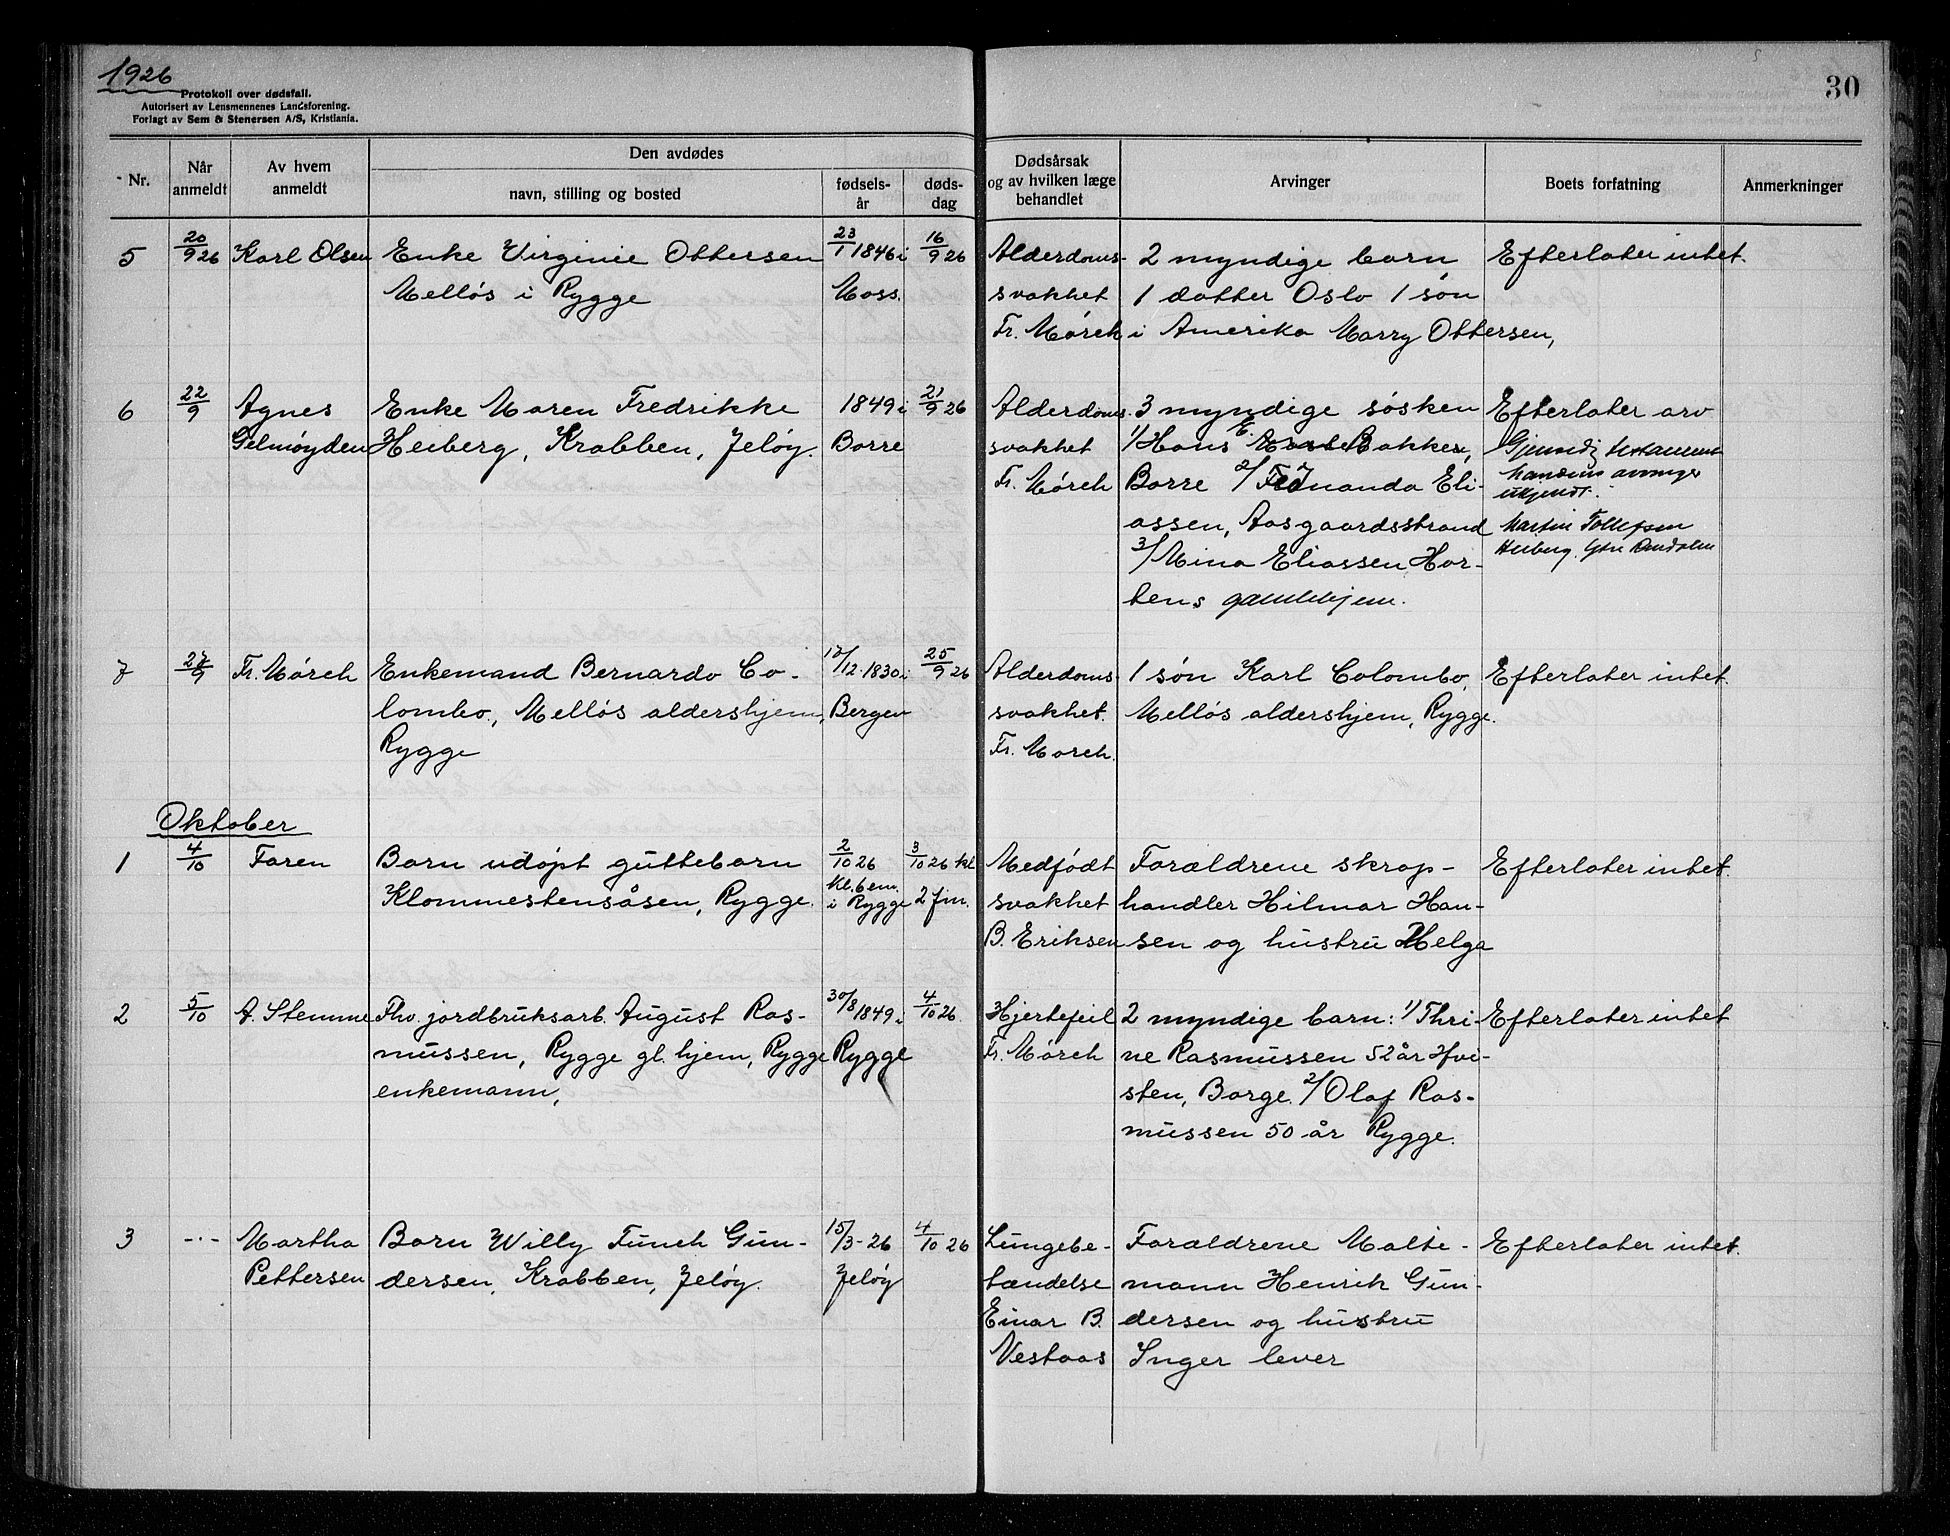 1926
30
Protokoll over dødsfall.
Autorisert av Lensmennenes Landsforening.
Forlagt av Sem & Stenersen A/S, Kristiania.
Nr.
Når anmeldt
Av hvem anmeldt
Den avdødes
navn, stilling og bosted
fødsels-år
døds-dag
Dødsårsak og av hvilken læge behandlet
Arvinger
Boets forfatning
Anmerkninger
5
20/9 26
Karl Olsen
Enke Virginie Ottersen
Melløs i Rygge
23/1 1846 i
Moss.
16/9 26
Alderdoms-
svakhet
Fr. Mørch
2 myndige barn
1 datter Oslo 1 søn
i Amerika Marry Ottersen,
Efterlater intet.
6
22/9
Agnes
Gelmøyden
Enke Maren Fredrikke
Heiberg, Krabben, Jeløy.
1849 i
Borre
21/9 26
Alderdoms-
svakhet
Fr. Mørch
3 myndige søsken
1/ Hans E. Bakken,
Borre 2/ Fernanda Eli-
assen, Aasgaardsstrand
3/ Mina Eliassen Hor-
tens gamlehjem.
Efterlater arv
mandens arvinger
ukjendt.
Martin Tollefsen
Heiberg,
7
27/9
Fr. Mørch
Enkemand Bernardo Co-
lombo, Melløs aldershjem,
Rygge
12/12 1830 i
Bergen
25/9 26
Alderdoms
svakhet.
Fr. Mørch.
1 søn Karl Colombo,
Melløs aldershjem, Rygge.
Efterlater intet.
Oktober
1
4/10
Faren
Barn udøpt guttebarn
Klommestensåsen, Rygge.
2/10 26
kl. 6 em.
i Rygge
3/10 26 kl
2 fm.
Medfødt
svakhet
B. Eriksen
Forældrene skrap-
handler Hilmar Han-
sen og hustru Helga
Efterlater intet.
2
5/10
A. Stemme
Fhv. jordbruksarb. August Ras-
mussen, Rygge gl. hjem, Rygge
enkemann,
30/8 1849 i
Rygge
4/10 26.
Hjertefeil
Fr. Mørch
2 myndige barn: 1/ Thri-
ne Rasmussen 52 år Hvi-
sten, Borge. 2/ Olaf Ras-
mussen 50 år Rygge.
Efterlater intet
3
-·-
Martha
Pettersen
Barn Willy Funch Gun-
dersen, Krabben, Jeløy.
15/3-26
Jeløy
4/10 26
Lungebe-
tændelse
Einar B.
Vestaas
Forældrene Malte-
mann Henrik Gun-
dersen og hustru
Inger lever
Efterlater intet.